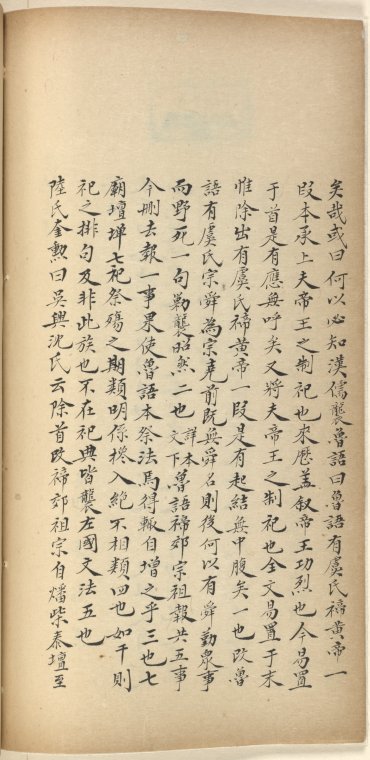 矣哉或曰何以必知漢儒襲魯語曰魯語有虞氏禘黃帝一
段本承上夫帝王之制祀也來歷蓋叙帝王功烈也今易置
于首是有應無呼矣又將夫帝王之制祀也全文易置于末
惟除出有虞氏禘黃帝一段是有起結無中腹矣一也改魯
語有虞氏宗舜為宗堯前既無舜名則後何以有舜勤衆事
而野死一句勦襲昭然二也詳本文下魯語禘郊宗祖報共五事
今刪去報一事果使魯語本祭法焉得輒自增之乎三也七
廟壇墠七祀祭殤之期類明係攙入絕不相類四也如干則
祀之排句及非此族也不在祀典皆襲左國文法五也
陸氏奎勲曰吳興沈氏云除首段禘郊祖宗自燔柴泰壇至